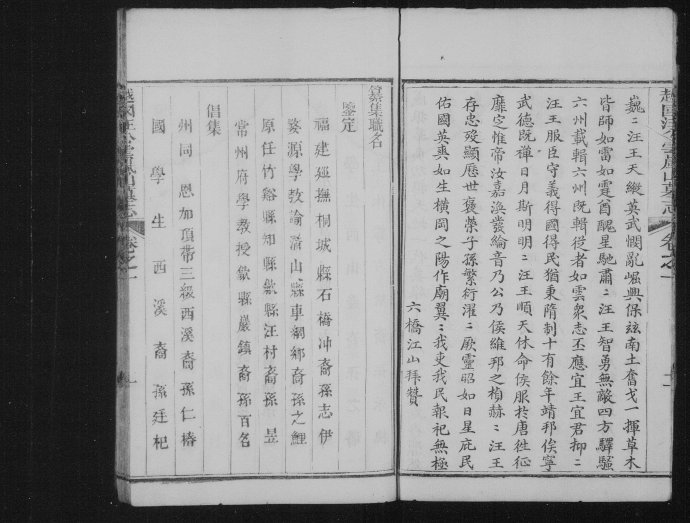 巍〻汪王天縱英武憫亂崛興保玆南土奮戈一揮草木
皆師如雷如霆酋醜星馳肅〻汪王智勇無敵四方驛騷
六州載輯六州既輯役者如雲衆志丕應宜王宜君抑〻
汪王服臣守義得國得民猶秉隋制十有餘年靖邦俟寧
武德既禪日月斯明明〻汪王順天休命侯服於唐徃征
靡定惟帝汝嘉渙發綸音乃公乃侯維邦之楨赫〻汪王
存忠歿顯歷世褒榮子孫繁衍濯〻厥靈昭如日星庇民
佑國英爽如生橫岡之陽作廟翼〻我吏我民報祀無極
六橋江山拜贊
纂集職名
鑒定
福建廵撫桐城縣石橋冲裔孫志伊
婺源學教諭潛山縣車網鄉裔孫之鯉
原任竹谿縣知縣歙縣汪村裔孫昱
常州府學教授歙縣巖鎮裔孫百名
倡集
州同恩加頂帶三級西溪裔孫仁椿
國學生西溪裔孫廷杞